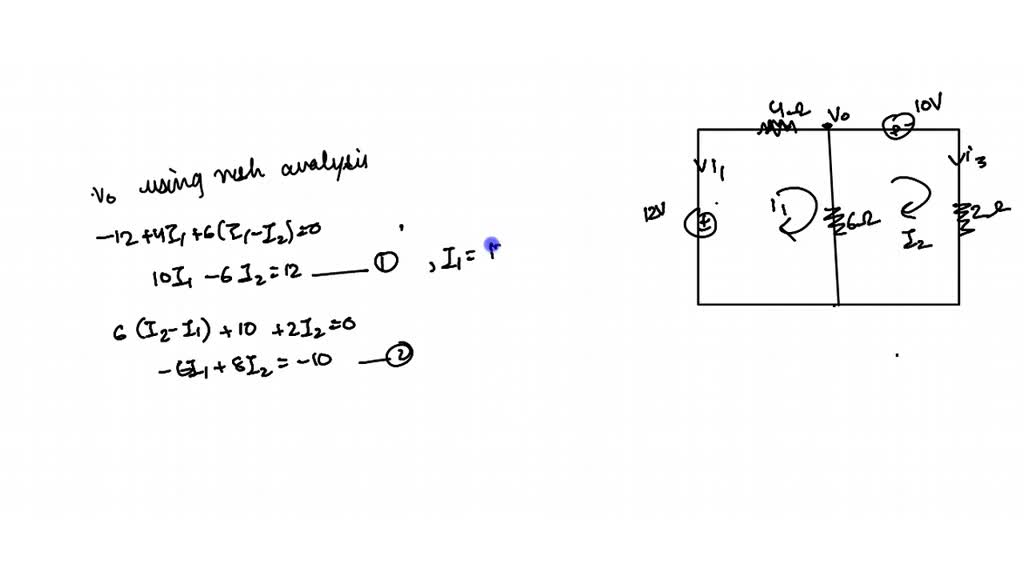 V₀ using mesh analysis
-12+4I₁+6(I₁-I₂)=0
10I₁-6I₂=12 —— ①, I₁=
6(I₂-I₁)+10+2I₂=0
-6I₁+8I₂=-10 —— ②
4Ω
V₀
10V
i₁
i₃
12V
+
i₁
6Ω
I₂
2Ω